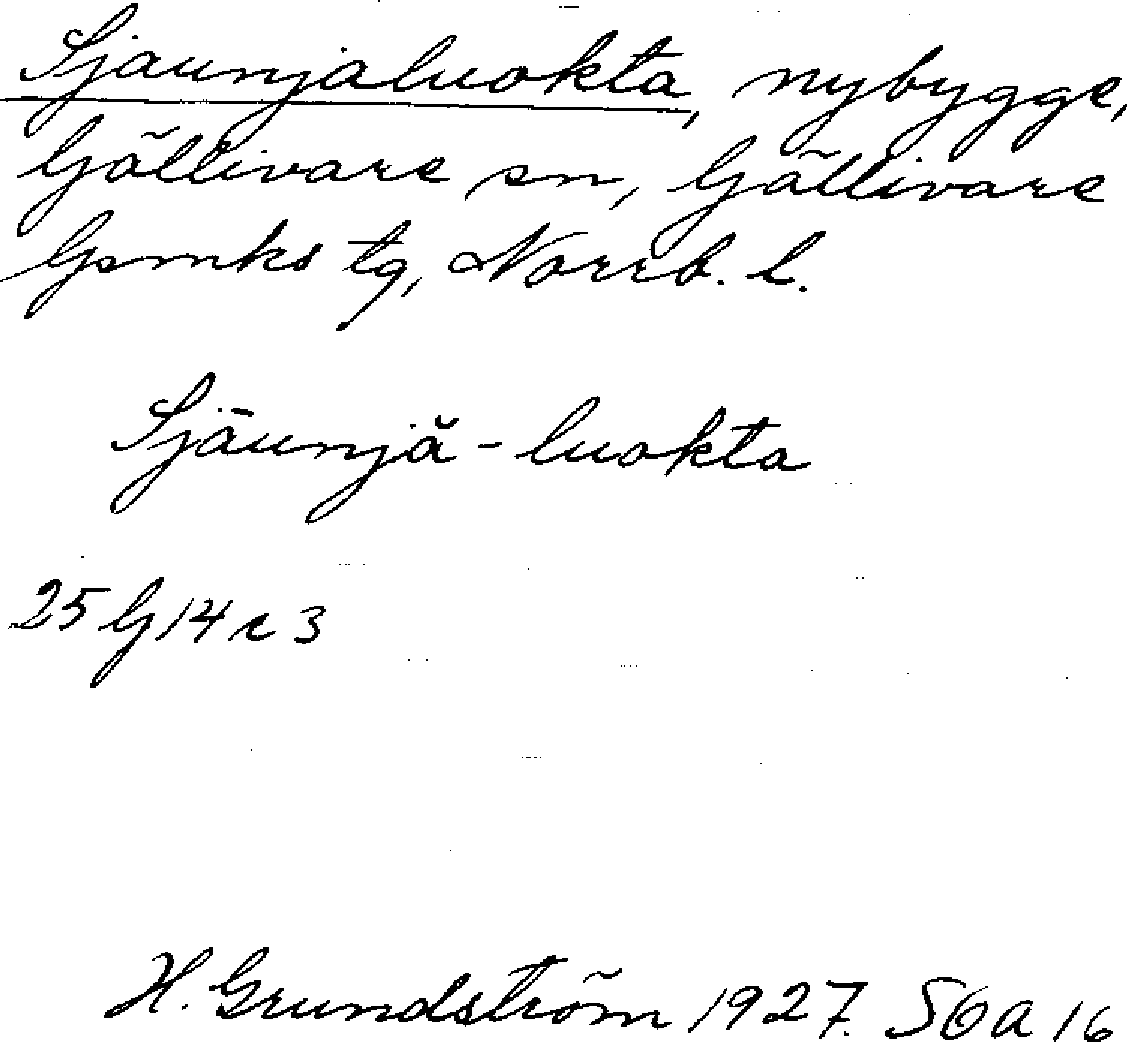 Sjaunjaluokta, nybygge,
Gällivare sn, Gällivare
lpmks tg, Norrb. l.
Sjāunjă-luokta
25 G 14 c 3
H. Grundström 1927. S6a 16